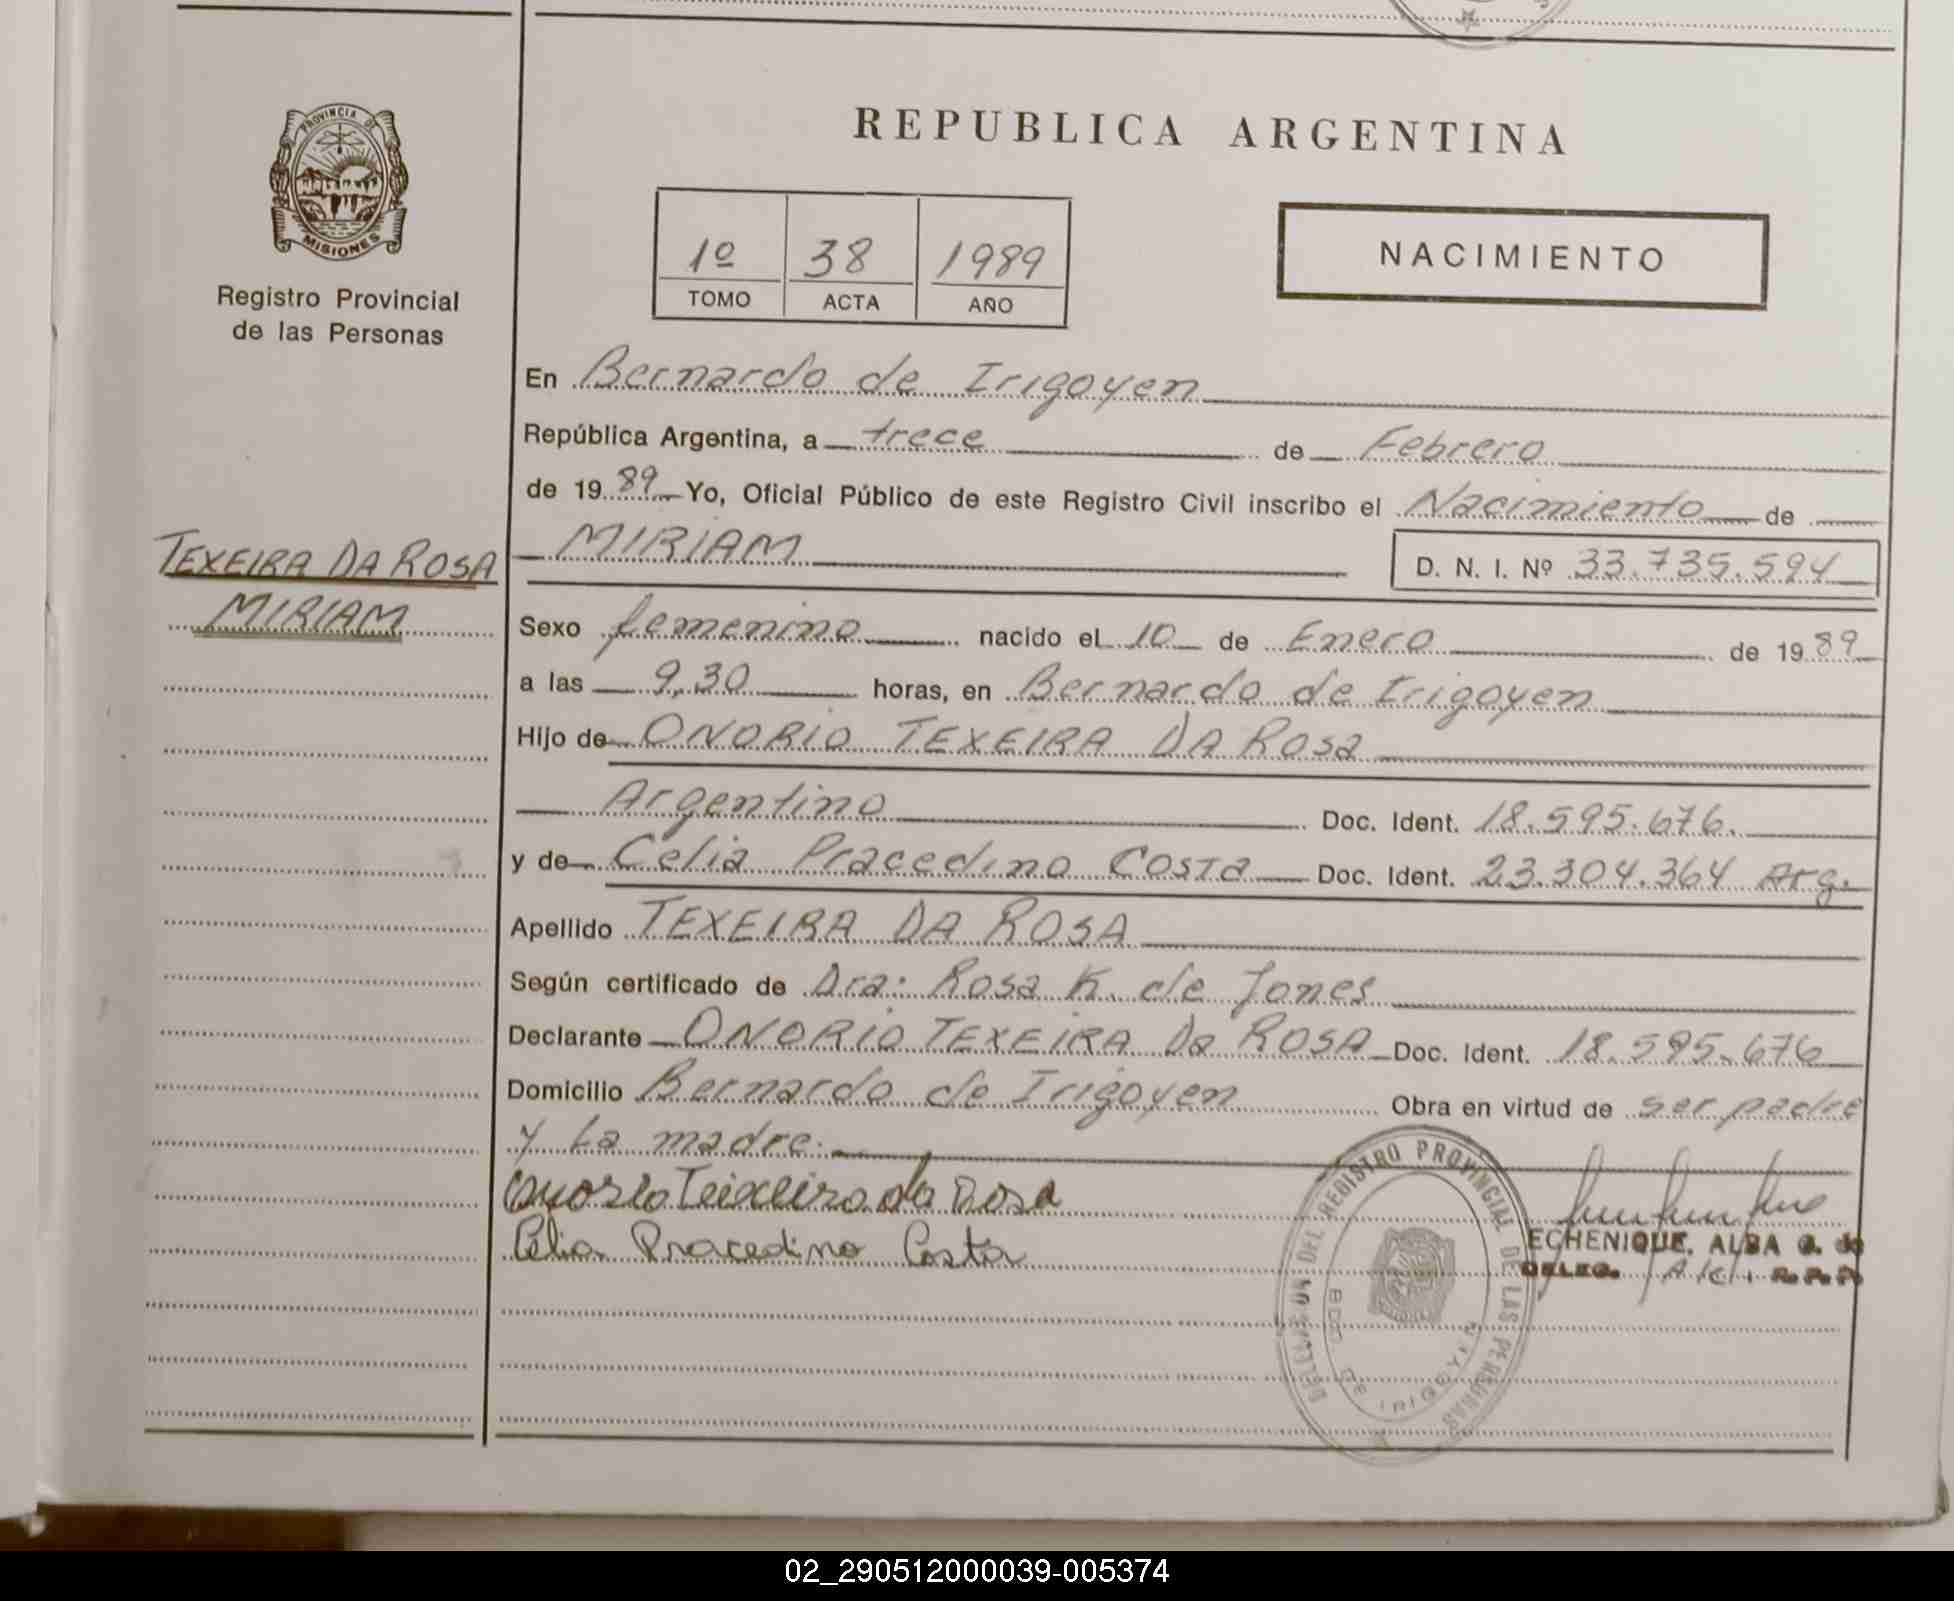 PROVINCIA DE
MISIONES
Registro Provincial
de las Personas
TEXEIRA DA ROSA
MIRIAM
REPUBLICA ARGENTINA
1º 38 1989
TOMO ACTA AÑO
NACIMIENTO
En Bernardo de Irigoyen
República Argentina, a trece de Febrero
de 1989 Yo, Oficial Público de este Registro Civil inscribo el Nacimiento de
MIRIAM D. N. I. Nº 33.735.594
Sexo femenino nacido el 10 de Enero de 1989
a las 9,30 horas, en Bernardo de Irigoyen
Hijo de ONORIO TEXEIRA DA ROSA
Argentino Doc. Ident. 18.595.676.
y de Celia Pracedino COSTA Doc. Ident. 23.304.364 Arg.
Apellido TEXEIRA DA ROSA
Según certificado de Dra: Rosa K. de Jones
Declarante ONORIO TEXEIRA Da ROSA Doc. Ident. 18.595.676
Domicilio Bernardo de Irigoyen Obra en virtud de ser padre
y La madre.
Onorio Teixeira da Rosa
Celia Pracedino Costa
ECHENIQUE, ALBA G. de
DELEG. R.P.P.
DELEGACION DEL REGISTRO PROVINCIAL DE LAS PERSONAS
BDO. DE IRIGOYEN
02_290512000039-005374